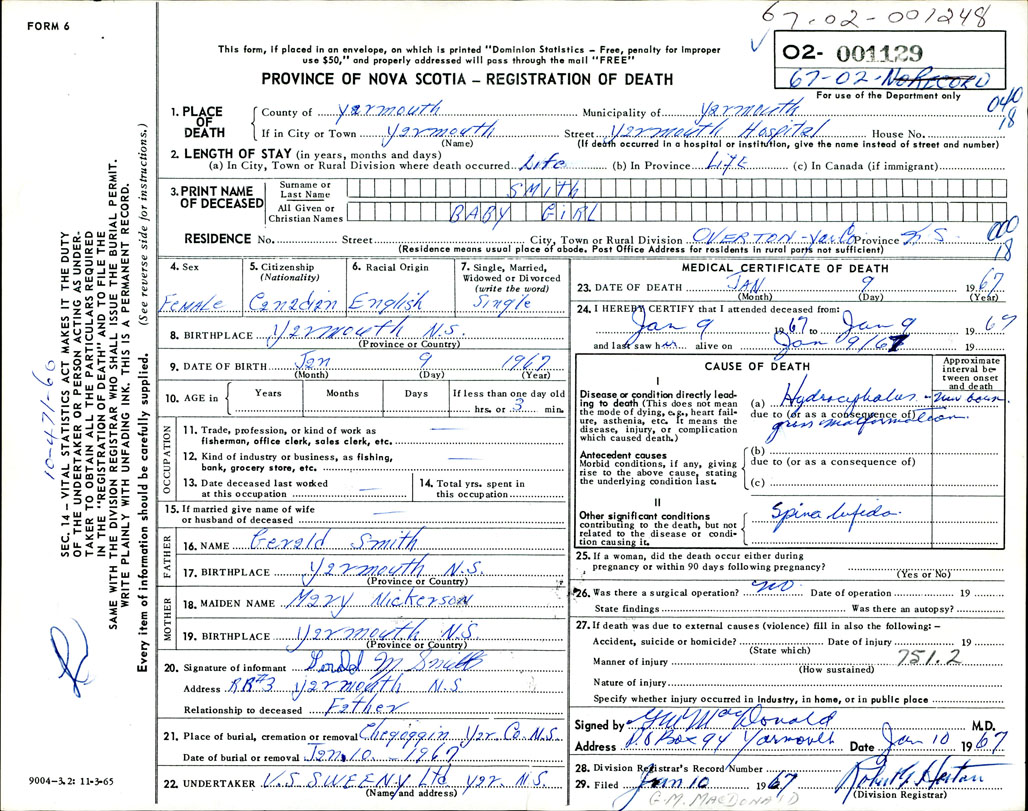 67-02-001248
FORM 6
This form, if placed in an envelope, on which is printed "Dominion Statistics – Free, penalty for improper
use $50," and properly addressed will pass through the mail "FREE"
02- 001129
PROVINCE OF NOVA SCOTIA – REGISTRATION OF DEATH
67-02-NO RECORD
For use of the Department only
040
18
1. PLACE OF DEATH
County of Yarmouth Municipality of Yarmouth
If in City or Town Yarmouth Street Yarmouth Hospital House No.
(Name) (If death occurred in a hospital or institution, give the name instead of street and number)
2. LENGTH OF STAY (in years, months and days)
(a) In City, Town or Rural Division where death occurred Life (b) In Province Life (c) in Canada (if immigrant)
3. PRINT NAME OF DECEASED
Surname or Last Name SMITH
All Given or Christian Names BABY GIRL
RESIDENCE No. Street City, Town or Rural Division OVERTON-Yar Co Province N.S. 000
(Residence means usual place of abode. Post Office Address for residents in rural parts not sufficient) 18
4. Sex
Female
5. Citizenship
(Nationality)
Canadian
6. Racial Origin
English
7. Single, Married,
Widowed or Divorced
(write the word)
Single
8. BIRTHPLACE Yarmouth N.S.
(Province or Country)
9. DATE OF BIRTH Jan 9 1967
(Month) (Day) (Year)
10. AGE in
Years Months Days If less than one day old
hrs. or 3 min.
OCCUPATION
11. Trade, profession, or kind of work as
fisherman, office clerk, sales clerk, etc.
12. Kind of industry or business, as fishing,
bank, grocery store, etc.
13. Date deceased last worked
at this occupation
14. Total yrs. spent in
this occupation
15. If married give name of wife
or husband of deceased
FATHER
16. NAME Gerald Smith
17. BIRTHPLACE Yarmouth N.S.
(Province or Country)
MOTHER
18. MAIDEN NAME Mary Nickerson
19. BIRTHPLACE Yarmouth N.S.
(Province or Country)
20. Signature of informant M Smith
Address RR#3 Yarmouth N.S
Relationship to deceased Father
21. Place of burial, cremation or removal Cheggogin Yar. Co. N.S.
Date of burial or removal Jan. 10. 1967
22. UNDERTAKER V.S SWEENY Ltd Yar. N.S.
(Name and address)
MEDICAL CERTIFICATE OF DEATH
23. DATE OF DEATH JAN 9 1967
(Month) (Day) (Year)
24. I HEREBY CERTIFY that I attended deceased from:
Jan 9 1967 to Jan 9 1967
and last saw her alive on Jan 9/67
CAUSE OF DEATH
Approximate
interval be-
tween onset
and death
I
Disease or condition directly lead-
ing to death (This does not mean
the mode of dying, e.g., heart fail-
ure, asthenia, etc. It means the
disease, injury, or complication
which caused death.)
(a) Hydrocephalus - new born.
due to (or as a consequence of)
gross malformation
Antecedent causes
Morbid conditions, if any, giving
rise to the above cause, stating
the underlying condition last.
(b)
due to (or as a consequence of)
(c)
II
Other significant conditions
contributing to the death, but not
related to the disease or condi-
tion causing it.
Spina bifida.
25. If a woman, did the death occur either during
pregnancy or within 90 days following pregnancy?
(Yes or No)
26. Was there a surgical operation? no Date of operation 19
State findings Was there an autopsy?
27. If death was due to external causes (violence) fill in also the following: –
Accident, suicide or homicide? Date of injury 19
(State which)
Manner of injury 751.2
(How sustained)
Nature of injury
Specify whether injury occurred in industry, in home, or in public place
Signed by GM MacDonald M.D.
Address P.O Box 94 Yarmouth Date Jan 10 1967
28. Division Registrar's Record Number
29. Filed Jan 10 1967 Robt G Horton
(Division Registrar)
G.M. MACDONALD
10-471-60
SEC. 14 – VITAL STATISTICS ACT MAKES IT THE DUTY
OF THE UNDERTAKER OR PERSON ACTING AS UNDER-
TAKER TO OBTAIN ALL THE PARTICULARS REQUIRED
IN THE "REGISTRATION OF DEATH" AND TO FILE THE
SAME WITH THE DIVISION REGISTRAR WHO SHALL ISSUE THE BURIAL PERMIT.
WRITE PLAINLY WITH UNFADING INK. THIS IS A PERMANENT RECORD.
Every item of information should be carefully supplied. (See reverse side for instructions.)
9004-3.2: 11-3-65